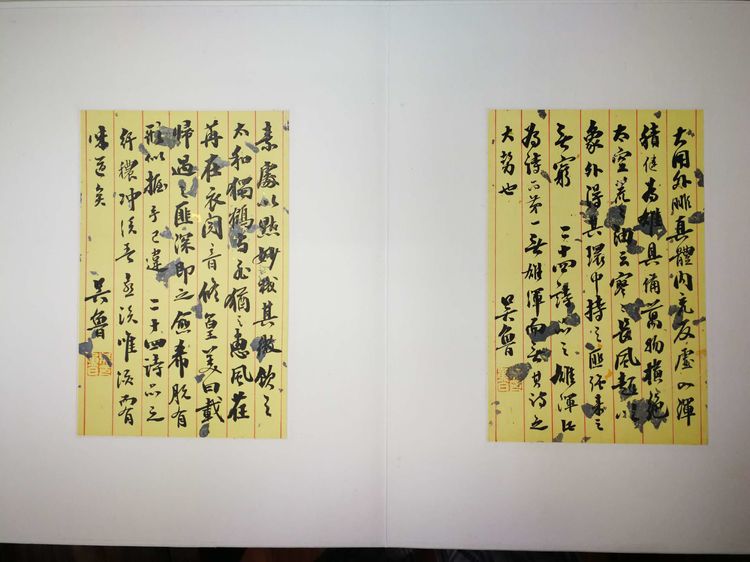 大用外腓真體內充反虛入渾
積健為雄具備萬物橫絕
太空荒〻油云寥〻長風超以
象外得其環中持之匪強來之
無窮 二十四詩品之雄渾
為詩品第一無雄渾而無其詩之
大勢也 吳魯
素處以默妙機其微飲之
太和獨鶴與飛猶之惠風荏
苒在衣閱音修篁美曰載
歸遇之匪深即之愈希脫有
形似握手已違 二十四詩品之
纖穠沖淡吾淡唯淡而有
味矣 吳魯